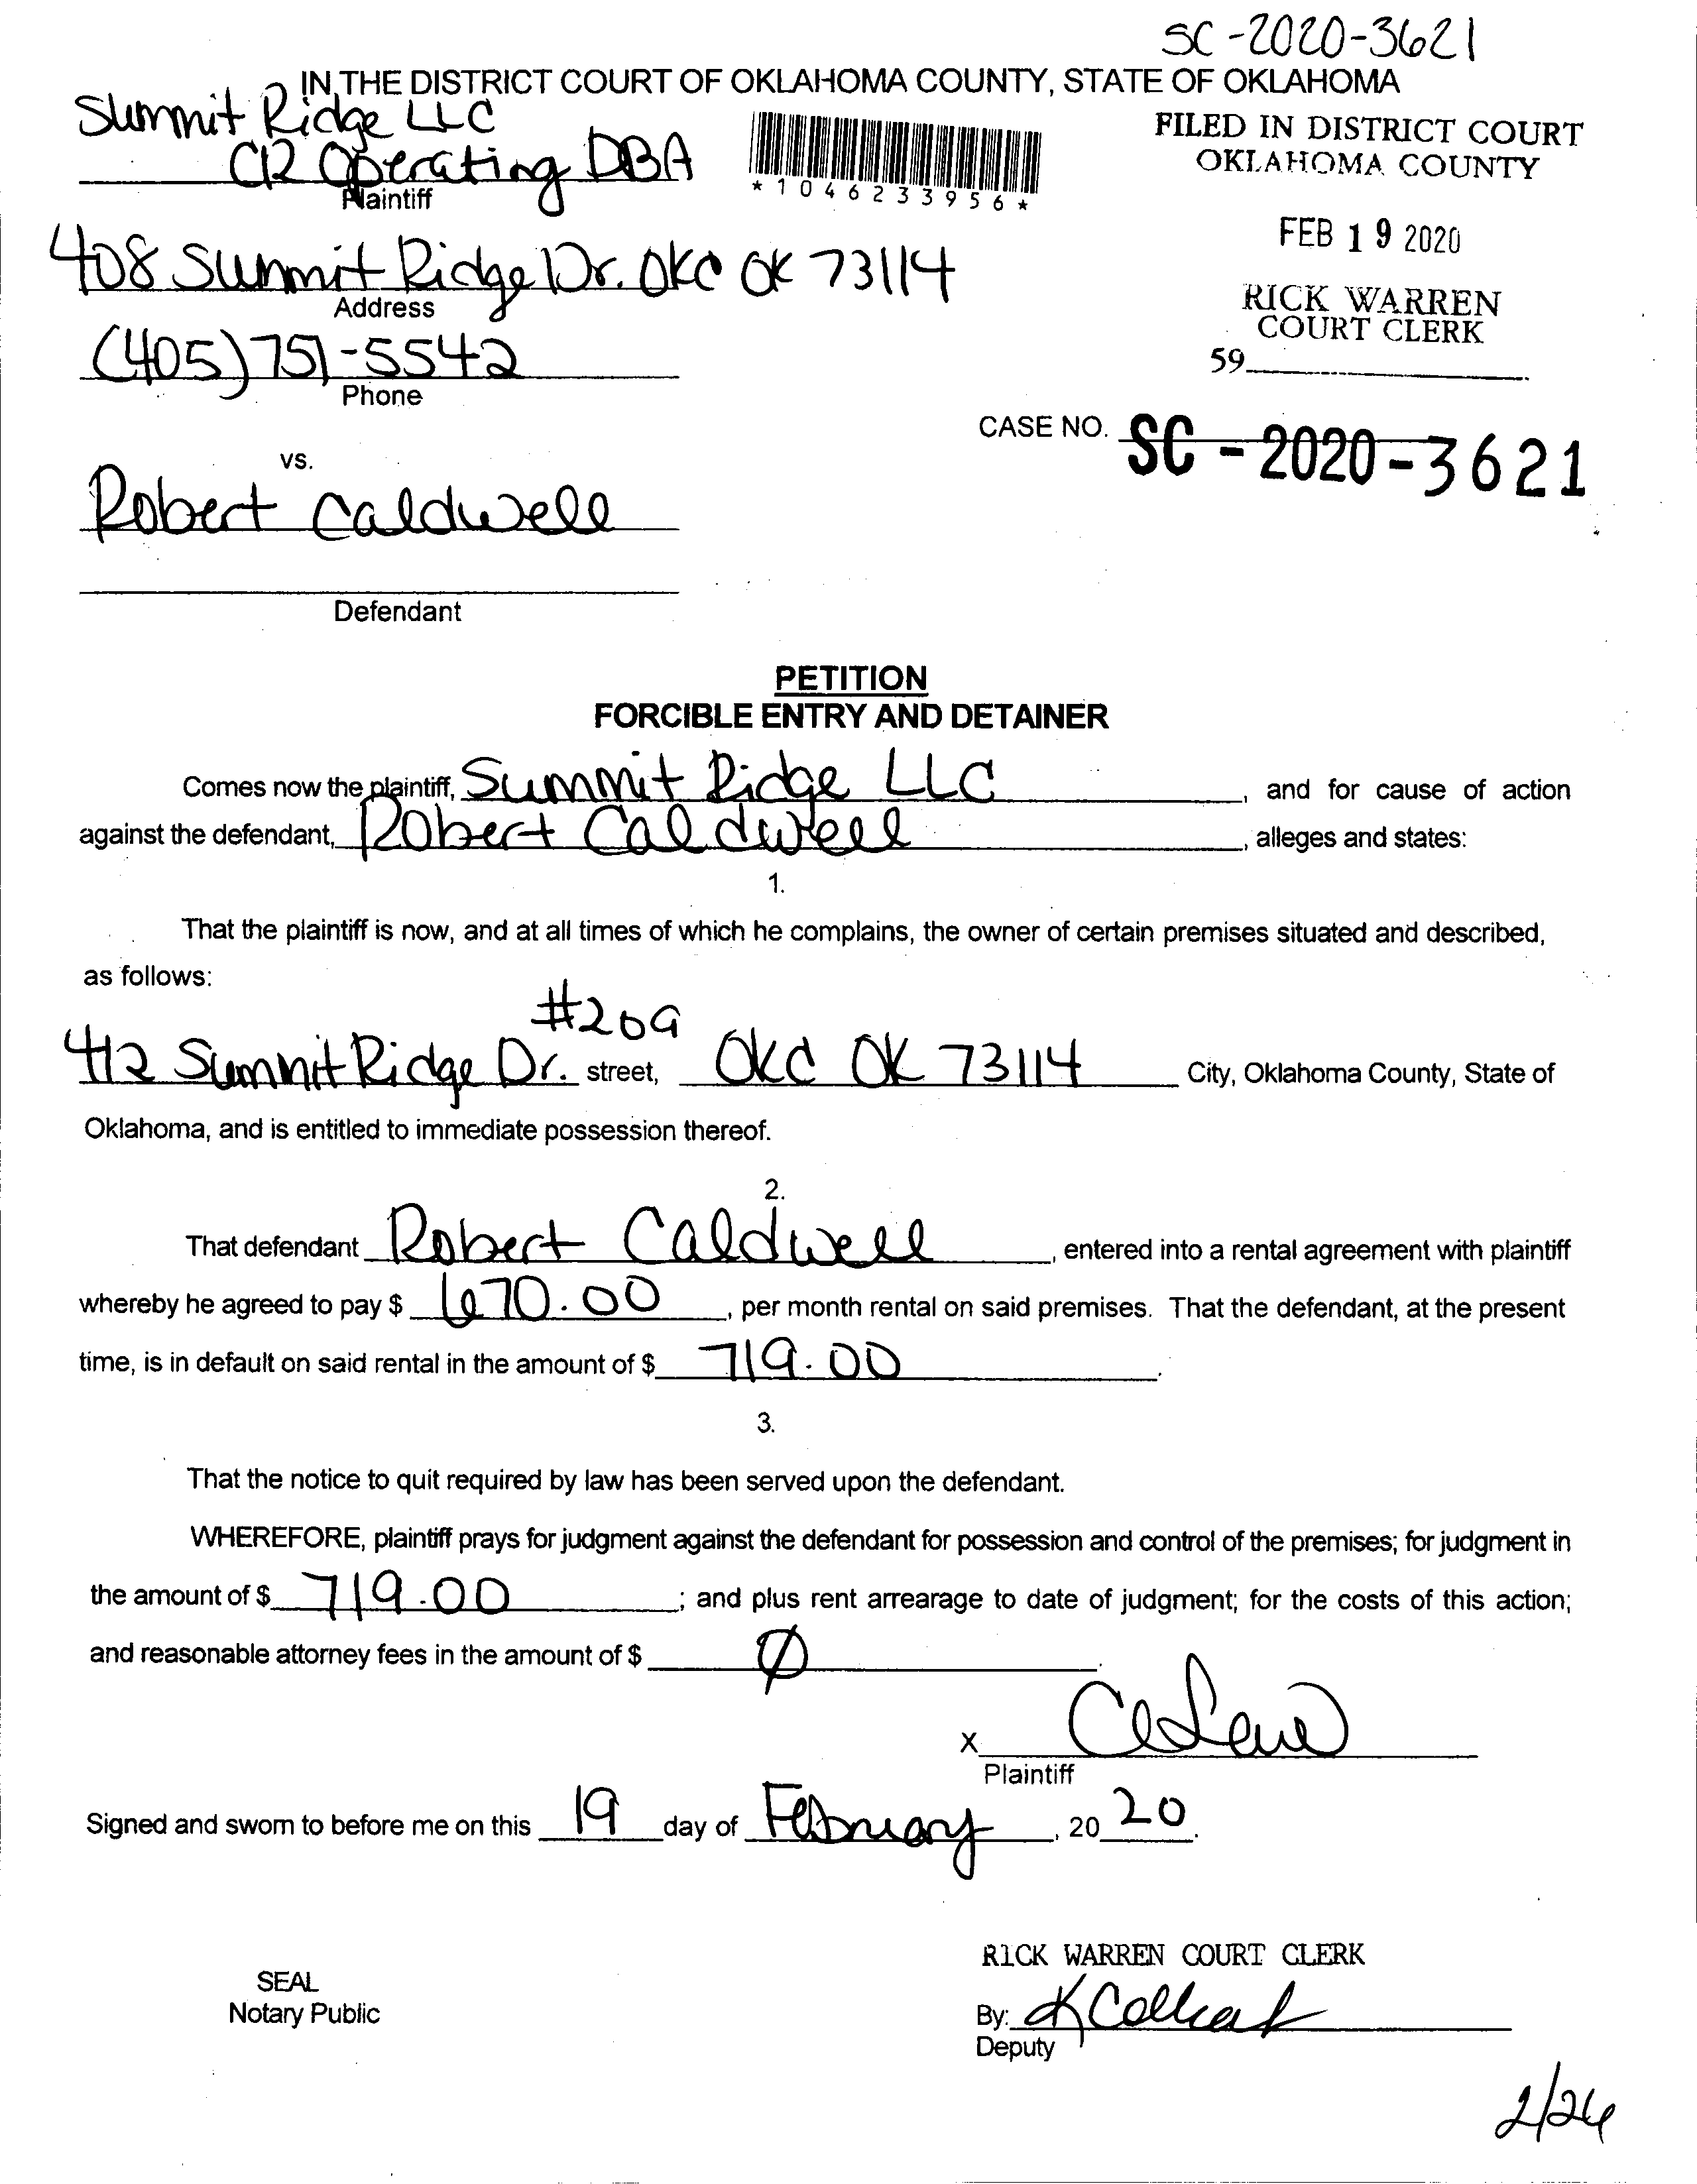 SC-2020-3621
IN THE DISTRICT COURT OF OKLAHOMA COUNTY, STATE OF OKLAHOMA
Summit Ridge LLC
CR Operating DBA
Plaintiff
*1046233956*
FILED IN DISTRICT COURT
OKLAHOMA COUNTY
FEB 19 2020
RICK WARREN
COURT CLERK
59
408 Summit Ridge Dr. OKC OK 73114
Address
(405)751-5542
Phone
CASE NO. SC-2020-3621
vs.
Robert Caldwell
Defendant
PETITION
FORCIBLE ENTRY AND DETAINER
Comes now the plaintiff, Summit Ridge LLC, and for cause of action
against the defendant, Robert Caldwell, alleges and states:
1.
That the plaintiff is now, and at all times of which he complains, the owner of certain premises situated and described,
as follows:
#209
412 Summit Ridge Dr. street, OKC OK 73114 City, Oklahoma County, State of
Oklahoma, and is entitled to immediate possession thereof.
2.
That defendant Robert Caldwell, entered into a rental agreement with plaintiff
whereby he agreed to pay $ 670.00, per month rental on said premises. That the defendant, at the present
time, is in default on said rental in the amount of $ 719.00.
3.
That the notice to quit required by law has been served upon the defendant.
WHEREFORE, plaintiff prays for judgment against the defendant for possession and control of the premises; for judgment in
the amount of $ 719.00; and plus rent arrearage to date of judgment; for the costs of this action;
and reasonable attorney fees in the amount of $ Ø.
X
Plaintiff
Signed and sworn to before me on this 19 day of February, 20 20.
RICK WARREN COURT CLERK
SEAL
Notary Public
By:
Deputy
2/26